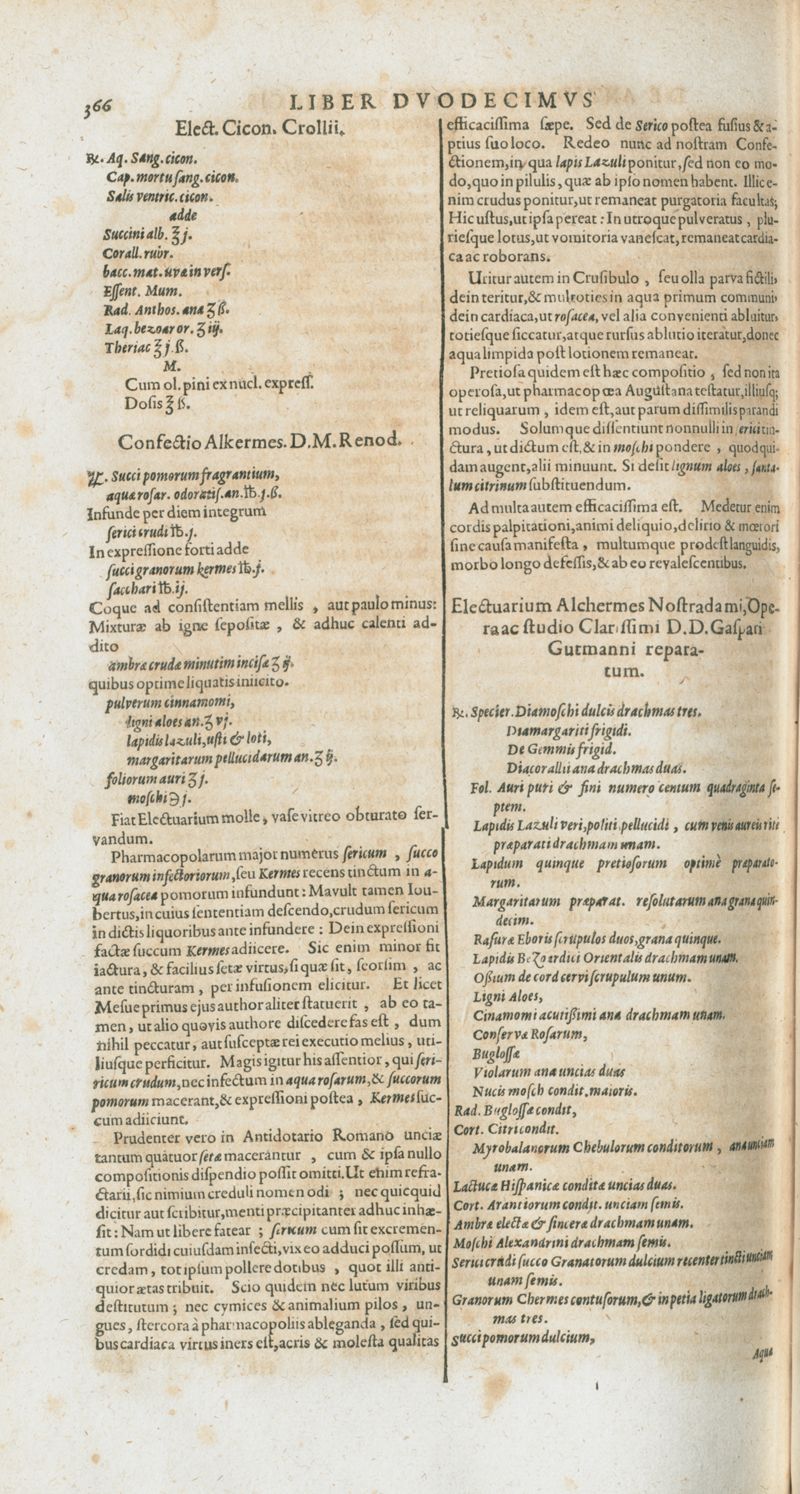 366
LIBER DVODECIMVS
Elect. Cicon. Crollii.
℞. Aq. Sang. cicon.
Cap. mortu sang. cicon.
Salis ventric. cicon.
adde
Succini alb. ℥ j.
Corall. rubr.
bacc. mat. uvæ in vers.
Essent. Mum.
Rad. Anthos. ana ʒ ß.
Laq. bezoar or. ʒ iij.
Theriac ℥ j. ß.
M.
Cum ol. pini ex nucl. express.
Dosis ℥ ß.
Confectio Alkermes. D. M. Renod.
℞. Succi pomorum fragrantium,
aquæ rosar. odoratis. an. ℔. j. ß.
Infunde per diem integrum
serici crudi ℔. j.
In expressione forti adde
succi granorum kermes ℔. j.
sacchari ℔. ij.
Coque ad consistentiam mellis , aut paulo minus:
Mixturæ ab igne sepositæ , & adhuc calenti ad-
dito
ambræ crudæ minutim incisæ ʒ ij.
quibus optime liquatis iniicito.
pulverum cinnamomi,
ligni aloes an. ʒ vj.
lapidis lazuli, usti & loti,
margaritarum pellucidarum an. ʒ ij.
foliorum auri ʒ j.
moschi ℈ j.
Fiat Electuarium molle, vase vitreo obturato ser-
vandum.
Pharmacopolarum major numerus sericum , succo
granorum infectoriorum, seu Kermes recens tinctum in a-
qua rosacea pomorum infundunt: Mavult tamen Iou-
bertus, in cuius sententiam descendo, crudum sericum
in dictis liquoribus ante infundere : Dein expressioni
factæ succum Kermes adiicere. Sic enim minor fit
iactura, & facilius setæ virtus, si quæ sit, seorsim , ac
ante tincturam , per infusionem elicitur. Et licet
Mesue primus ejus author aliter statuerit , ab eo ta-
men, ut alio quovis authore discedere fas est , dum
nihil peccatur, aut susceptæ rei executio melius, uti-
liusque perficitur. Magis igitur his assentior, qui seri-
ricum crudum, nec infectum in aqua rosarum, & succorum
pomorum macerant, & expressioni postea , Kermes suc-
cum adiiciunt.
Prudenter vero in Antidotario Romano unciæ
tantum quatuor setæ macerantur , cum & ipsa nullo
compositionis dispendio possit omitti. Ut enim refra-
ctarii, sic nimium creduli nomen odi ; nec quicquid
dicitur aut scribitur, menti præcipitanter adhuc inhæ-
sit: Nam ut libere fatear ; sericum cum sit excremen-
tum sordidi cuiusdam insecti, vix eo adduci possum, ut
credam, tot ipsum pollere dotibus , quot illi anti-
quior ætas tribuit. Scio quidem nec lutum viribus
destitutum ; nec cymices & animalium pilos , un-
gues, stercora à pharmacopoliis ableganda , sed qui-
bus cardiaca virtus iners est, acris & molesta qualitas
efficacissima sæpe. Sed de Serico postea fusius & a-
ptius suo loco. Redeo nunc ad nostram Confe-
ctionem, in qua lapis Lazuli ponitur, sed non eo mo-
do, quo in pilulis, quæ ab ipso nomen habent. Illic e-
nim crudus ponitur, ut remaneat purgatoria facultas;
Hic ustus, ut ipsa pereat : In utroque pulveratus , plu-
riesque lotus, ut vomitoria vanescat, remaneat cardia-
ca ac roborans.
Uritur autem in Crusibulo , seu olla parva fictili,
dein teritur, & multoties in aqua primum communi,
dein cardiaca, ut rosacea, vel alia convenienti abluitur,
totiesque siccatur, atque rursus ablutio iteratur, donec
aqua limpida post lotionem remaneat.
Pretiosa quidem est hæc compositio , sed non ita
operosa, ut pharmacopœa Augustana testatur, illiusq;
ut reliquarum , idem est, aut parum dissimilis parandi
modus. Solumque dissentiunt nonnulli in serici tin-
ctura, ut dictum est, & in moschi pondere , quod qui-
dam augent, alii minuunt. Si desit lignum aloes, santa-
lum citrinum substituendum.
Ad multa autem efficacissima est. Medetur enim
cordis palpitationi, animi deliquio, delirio & mœrori
sine causa manifesta , multumque prodest languidis,
morbo longo defessis, & ab eo revalescentibus.
Electuarium Alchermes Nostradami, Ope-
ra ac studio Clarissimi D. D. Gaspari
Gutmanni repara-
tum.
℞. Specier. Diamoschi dulcis drachmas tres.
Diamargariti frigidi.
De Gemmis frigid.
Diacorallii ana drachmas duas.
Fol. Auri puri & fini numero centum quadraginta se-
ptem.
Lapidis Lazuli veri, politi pellucidi , cum venis aureis rite
præparati drachmam unam.
Lapidum quinque pretiosorum optimè præparato-
rum.
Margaritarum præparat. resolutarum ana grana quin-
decim.
Rasuræ Eboris scrupulos duos, grana quinque.
Lapidis Bezoardici Orientalis drachmam unam.
Ossium de cord cervi scrupulum unum.
Ligni Aloes,
Cinamomi acutissimi ana drachmam unam.
Conservæ Rosarum,
Buglossæ
Violarum ana uncias duas
Nucis mosch condit. maioris.
Rad. Buglossæ condit,
Cort. Citri condit.
Myrobalanorum Chebulorum conditorum , ana unciam
unam.
Lactucæ Hispanicæ conditæ uncias duas.
Cort. Arantiorum condit. unciam semis.
Ambræ electæ & sinceræ drachmam unam.
Moschi Alexandrini drachmam semis.
Serici crudi succo Granatorum dulcium recenter tincti unciam
unam semis.
Granorum Chermes contusorum, & in petia ligatorum drach-
mas tres.
Succi pomorum dulcium,
Aquæ